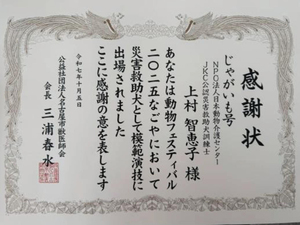 感謝状
じゃがいも号
NPO法人日本動物介護センター
JKC公認災害救助犬訓練士
上村智恵子 様
あなたは動物フェスティバル
2025なごやにおいて
災害救助犬として模範演技に
出場されました
ここに感謝の意を表します
令和七年十月五日
公益社団法人名古屋市獣医師会
会長 三浦春水